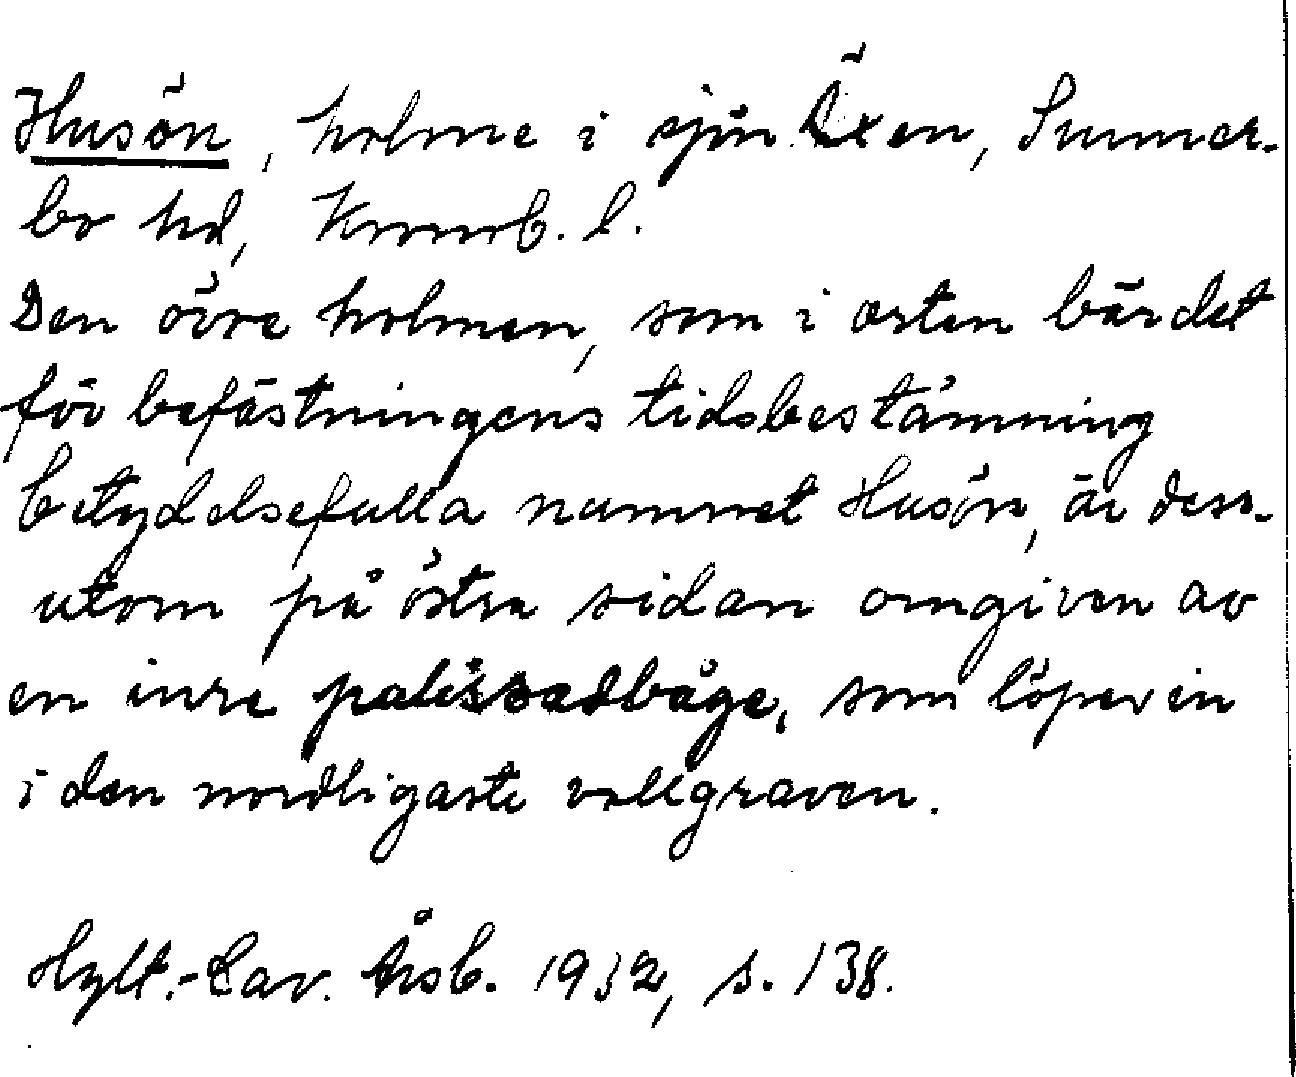 Husön, holme i sjön Äxen, Sunner-
bo hd, Kronob. l.
Den övre holmen, som i orten bär det
för befästningens tidsbestämning
betydelsefulla namnet Husön, är dess-
utom på östra sidan omgiven av
en inre palissadbåge, som löper in
i den nordligaste vallgraven.
Hylt.-Cav. Årsb. 1932, s. 138.